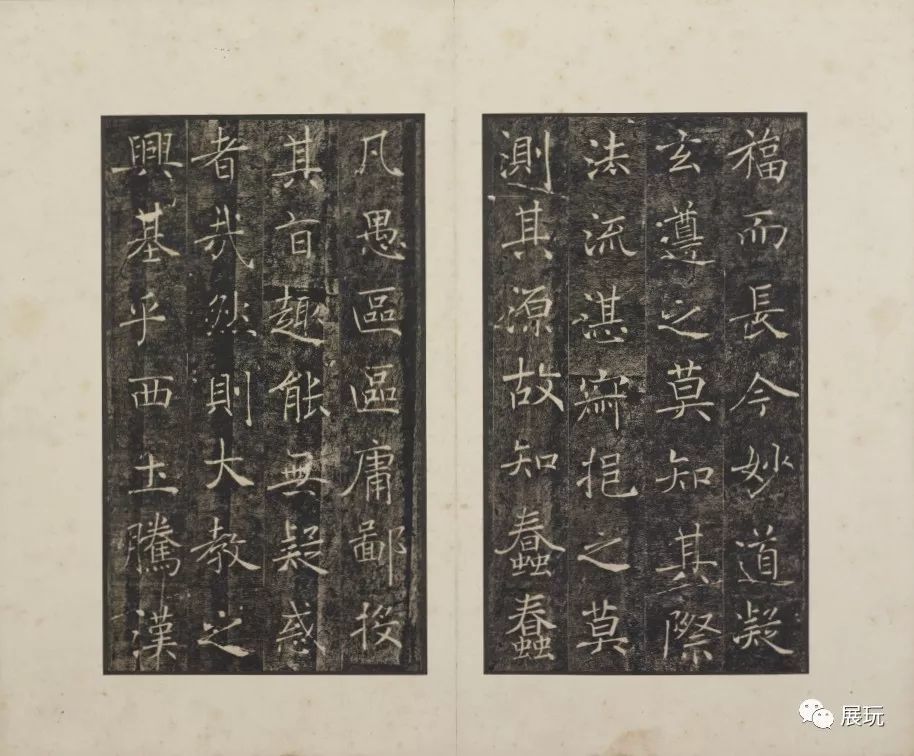 福而長今妙道凝
玄遵之莫知其際
法流湛寂挹之莫
測其源故知蠢蠢
凡愚區區庸鄙投
其旨趣能無疑惑
者哉然則大教之
興基乎西土騰漢
展玩